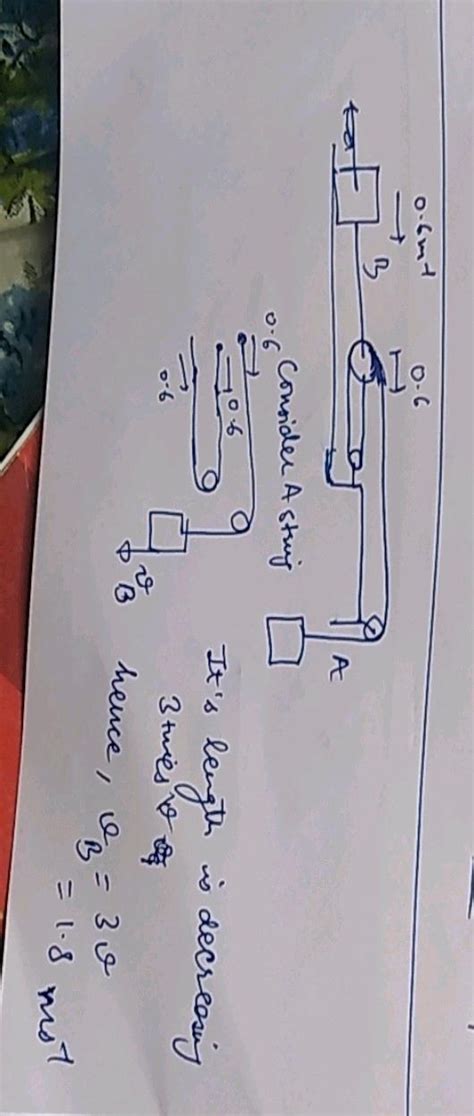 0.6 ms⁻¹
0.6
B
A
Consider A string
0.6
0.6
0.6
v
B
It's length is decreasing
3 times v
hence, v_B = 3v
= 1.8 ms⁻¹